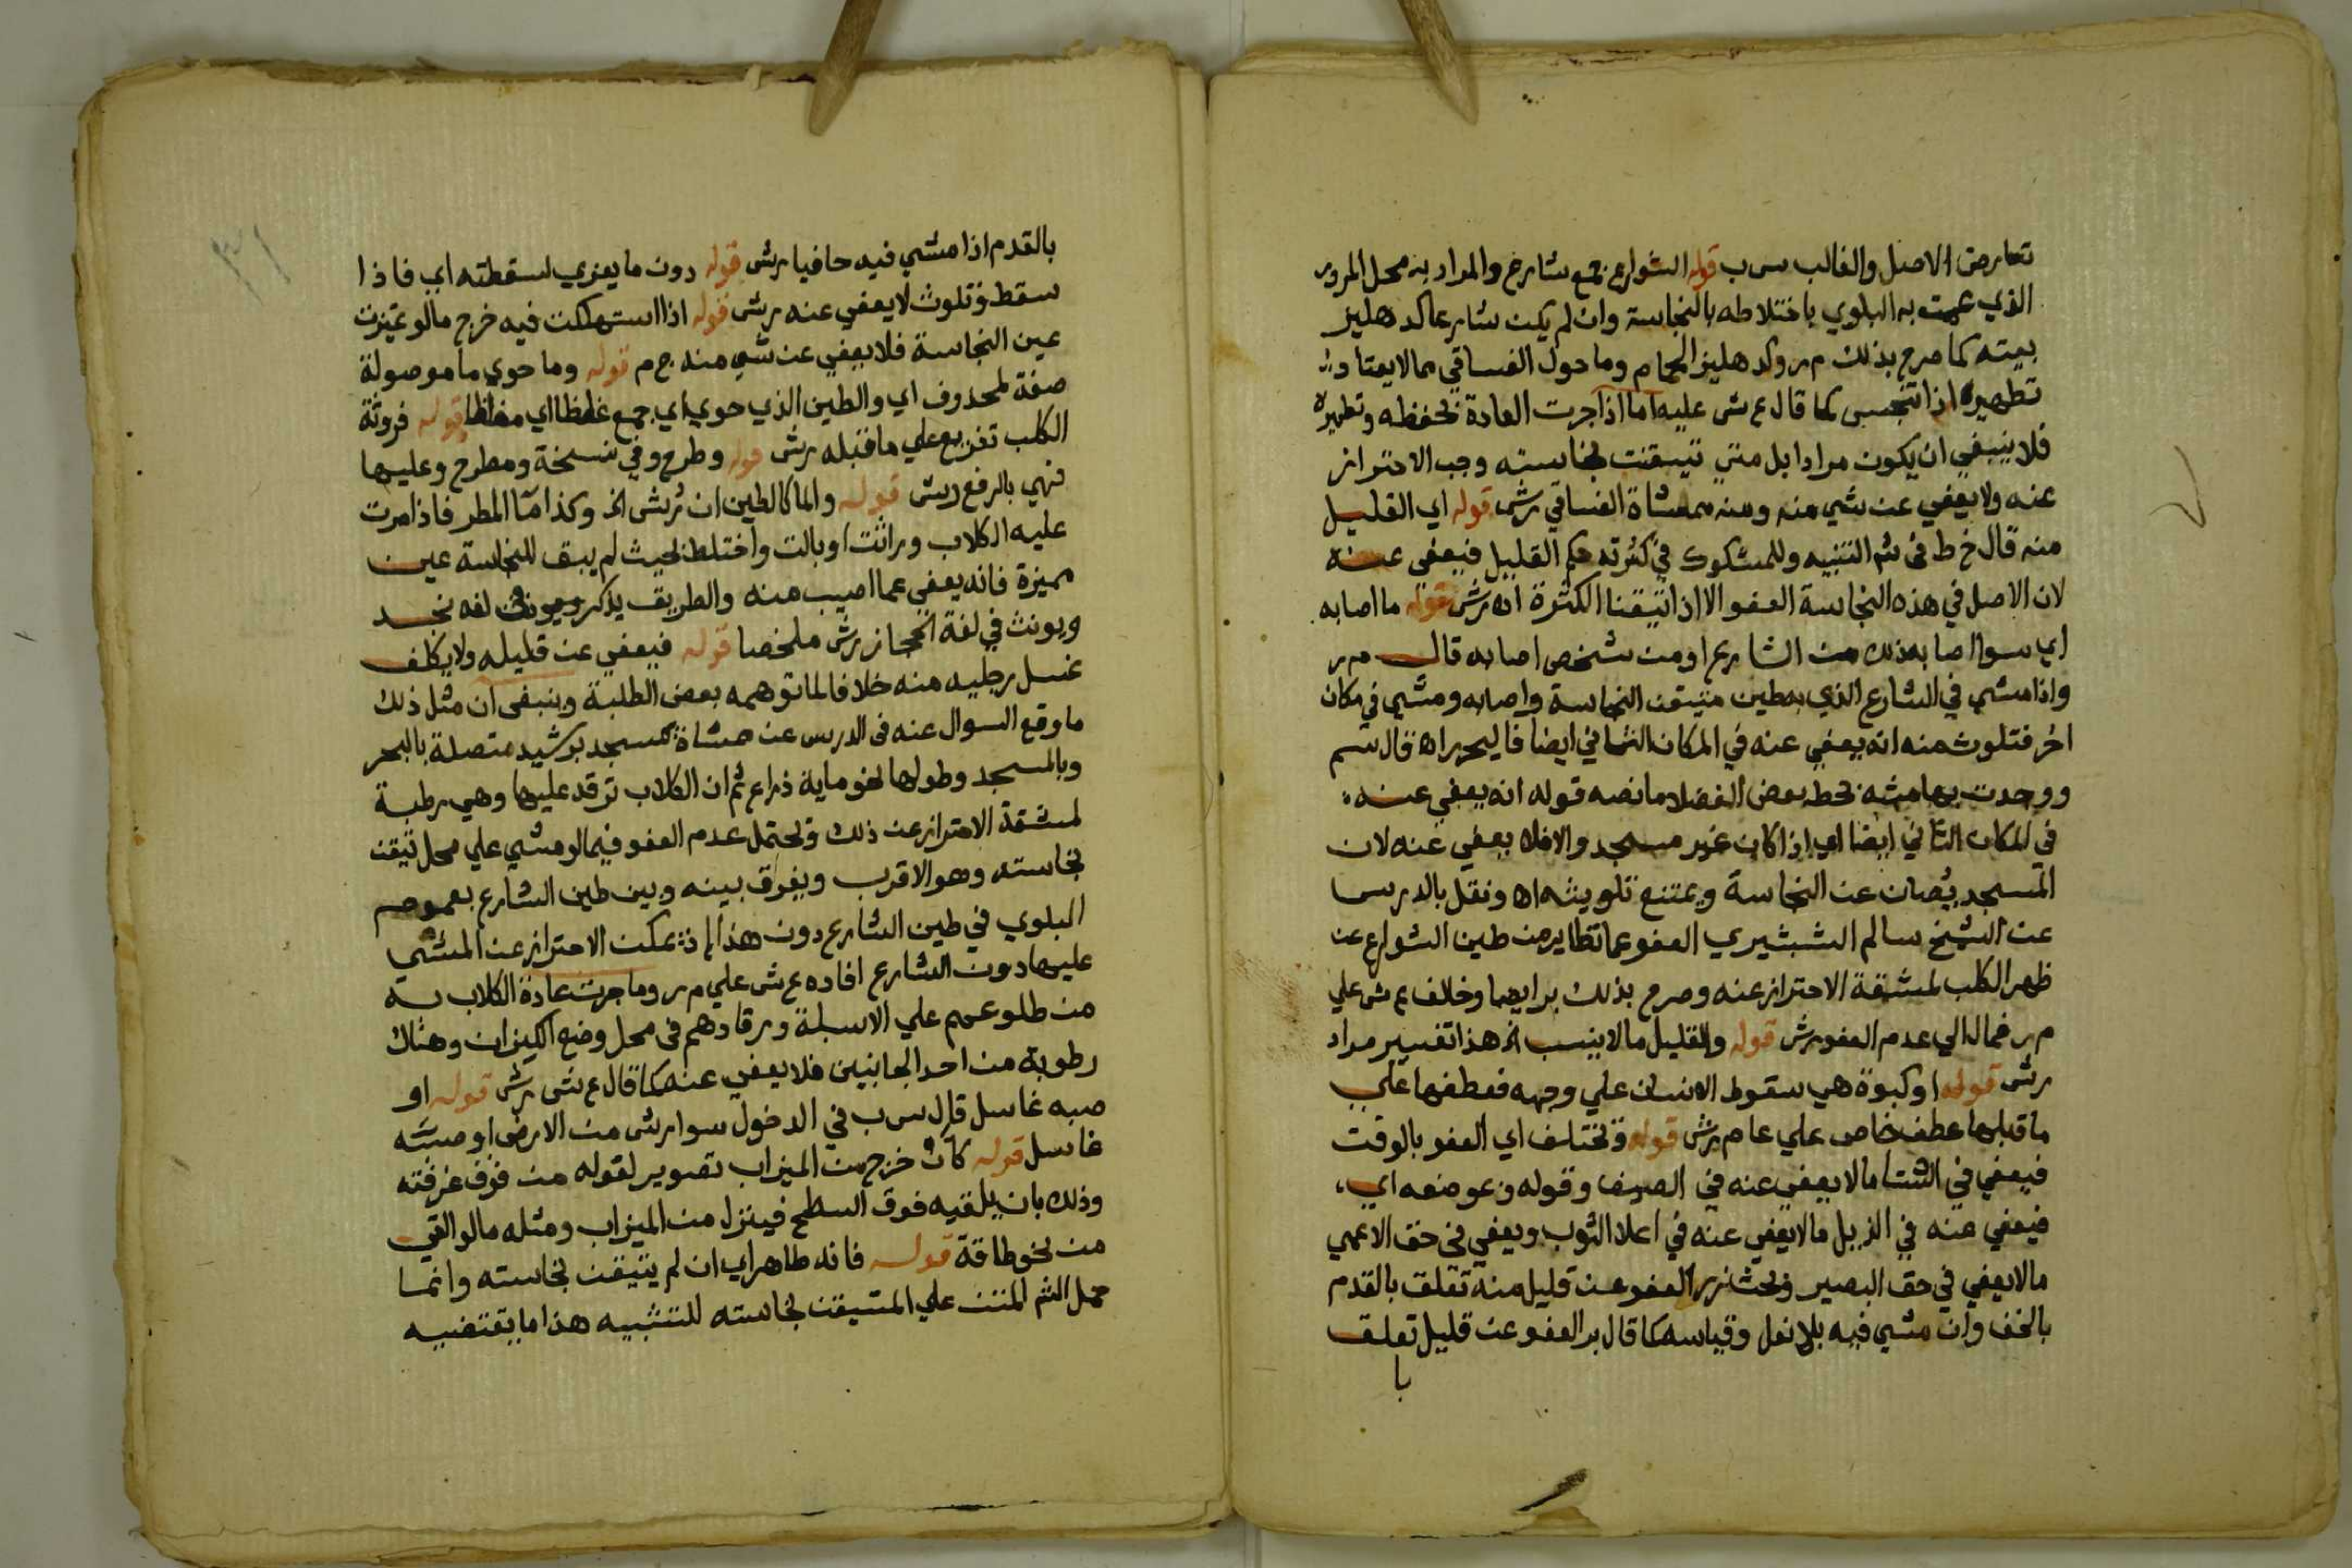 تعارض الاصل والغالب س ب قوله الشوارع جمع شارع والمراد به محل المرور
الذي عمت به البلوي باختلاطه بالنجاسة وان لم يكن شارعا كدهليز
بيته كما صرح بذلك م ر وكدهليز الحمام وما حول الفساقي مما لا يعتاد
تطهيره اذا تنجس كما قال ع ش عليه اما اذا جرت العادة بحفظه وتطهيره
فلا ينبغي ان يكون مرادا بل متي تيقنت نجاسته وجب الاحتراز
عنه ولا يعفي عن شي منه ومنه ممشاة الفساقي رش قوله اي القليل
منه قال خ ط في شم التنبيه وللمشكوك في كثرته حكم القليل فيعفي عنه
لان الاصل في هذه النجاسة العفو الا اذا تيقنا الكثرة اه رش قوله ما اصابه
اي سوا اصابه ذلك من الشارع او من شخص اصابه قال م ر
واذا مشي في الشارع الذي به طين متيقن النجاسة واصابه ومشي في مكان
اخر فتلوث منه انه يعفي عنه في المكان الثاني ايضا فاليحرر اه قال سم
ووجدت بهامشه بخط بعض الفضلا ما نصه قوله انه يعفي عنه
في المكان الثاني ايضا اي اذا كان غير مسجد والا فلا يعفي عنه لان
المسجد يصان عن النجاسة ويمتنع تلويثه اه ونقل بالدرس
عن الشيخ سالم الشبشيري العفو عما تطاير من طين الشوارع عن
ظهر الكلب لمشقة الاحتراز عنه وصرح بذلك برايهما وخلاف ع ش علي
م ر فمال الي عدم العفو رش قوله والقليل ما لا ينسب الخ هذا تفسير مراد
رش قوله او كبوة هي سقوط الانسان علي وجهه فعطفها علي
ما قبلها عطف خاص علي عام رش قوله وتختلف اي العفو بالوقت
فيعفي في الشتا ما لا يعفي عنه في الصيف وقوله وعوضعه اي
فيعفي عنه في الذيل ما لا يعفي عنه في اعلا الثوب ويعفي في حق الاعمي
ما لا يعفي في حق البصير وبحث زر العفو عن قليل منه تعلق بالقدم
بالخف وان مشي فيه بلا نعل وقياسه كما قال بر العفو عن قليل تعلق
با
٣١
بالقدم اذا مشي فيه حافيا رش قوله دون ما يعزي لسقطته اي فاذا
سقط فتلوث لا يعفي عنه رش قوله اذا استهلكت فيه خرج ما لو تميزت
عين النجاسة فلا يعفي عن شي منه ج م قوله وما حوي ما موصولة
صفة لمحذوف اي والطين الذي حوي اي جمع غلظا اي مغلظا قوله فروثة
الكلب تفريع علي ما قبله رش قوله وطرح وفي نسخة ومطرح وعليها
فهي بالرفع رش قوله والما كالطين ان رش الخ وكذا ما المطر فاذا مرت
عليه الكلاب وراثت او بالت واختلط بحيث لم يبق للنجاسة عين
مميزة فانه يعفي عما اصيب منه والطريق يذكر في لغة نجد
ويونث في لغة الحجاز رش ملخصا قوله فيعفي عن قليله ولا يكلف
غسل رجليه منه خلافا لما توهمه بعض الطلبة وينبغي ان مثل ذلك
ما وقع السوال عنه في الدرس عن ممشاة مسجد برشيد متصلة بالبحر
وبالمسجد وطولها نحو ماية ذراع ثم ان الكلاب ترقد عليها وهي رطبة
لمشقة الاحتراز عن ذلك ويحتمل عدم العفو فيما لو مشي علي محل تيقن
نجاسته وهو الاقرب ويفرق بينه وبين طين الشارع بعموم
البلوي في طين الشارع دون هذا اذ يمكن الاحتراز عن المشي
عليها دون الشارع افاده ع ش علي م ر وما جرت عادة الكلاب به
من طلوعهم علي الاسبلة ورقادهم في محل وضع الكيزان وهناك
رطوبة من احد الجانبين فلا يعفي عنه كما قال ع ش رش قوله او
صبه غاسل قال س ب في الدخول سوا رش من الارض او صبه
غاسل قوله كان خرج من الميزاب تصوير لقوله من فوق غرفته
وذلك بان يلقيه فوق السطح فينزل من الميزاب ومثله ما لو القي
من نحو طاقة قوله فانه طاهر اي ان لم يتيقن نجاسته وانما
حمل الشم المنتن علي المتيقن نجاسته للتنبيه هذا ما يقتضيه